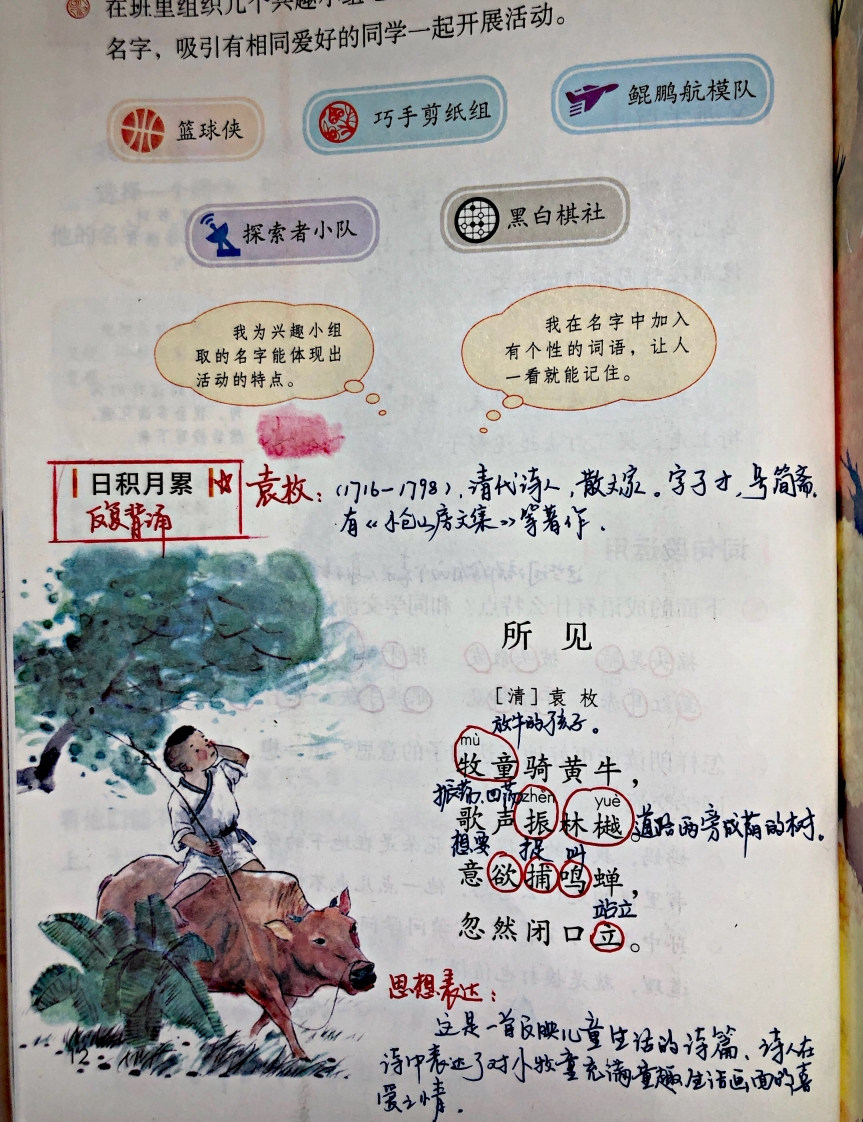 在班里组织几个兴趣小组
名字，吸引有相同爱好的同学一起开展活动。
篮球侠
巧手剪纸组
鲲鹏航模队
探索者小队
黑白棋社
我为兴趣小组
取的名字能体现出
活动的特点。
我在名字中加入
有个性的词语，让人
一看就能记住。
日积月累
反复背诵
袁枚：(1716-1798)，清代诗人，散文家。字子才，号简斋，
有《小仓山房文集》等著作。
所见
［清］袁枚
放牛的孩子。
mù
牧童骑黄牛，
振荡、回荡 zhèn yuè
歌声振林樾。道路两旁成荫的树。
想要 捉 叫
意欲捕鸣蝉，
站立
忽然闭口立。
思想表达：
这是一首反映儿童生活的诗篇、诗人在
诗中表达了对小牧童充满童趣生活画面的喜
爱之情.
12